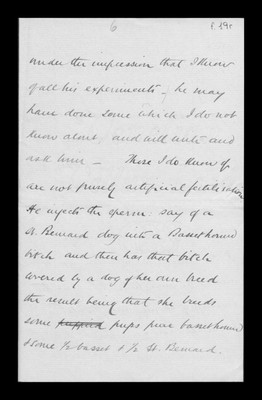 6
f. 19r
under the impression that I know
of all his experiments - he may
have done some which I do not
know about, and will write and
ask him - Those I do know of
are not purely artificial fertilisation
He injects the sperm: say of a
St. Bernard dog into a Basset hound
bitch and then has that bitch
covered by a dog of her own breed
the result being that she breeds
some pups pure basset hound
& some ½ basset & ½ St. Bernard.